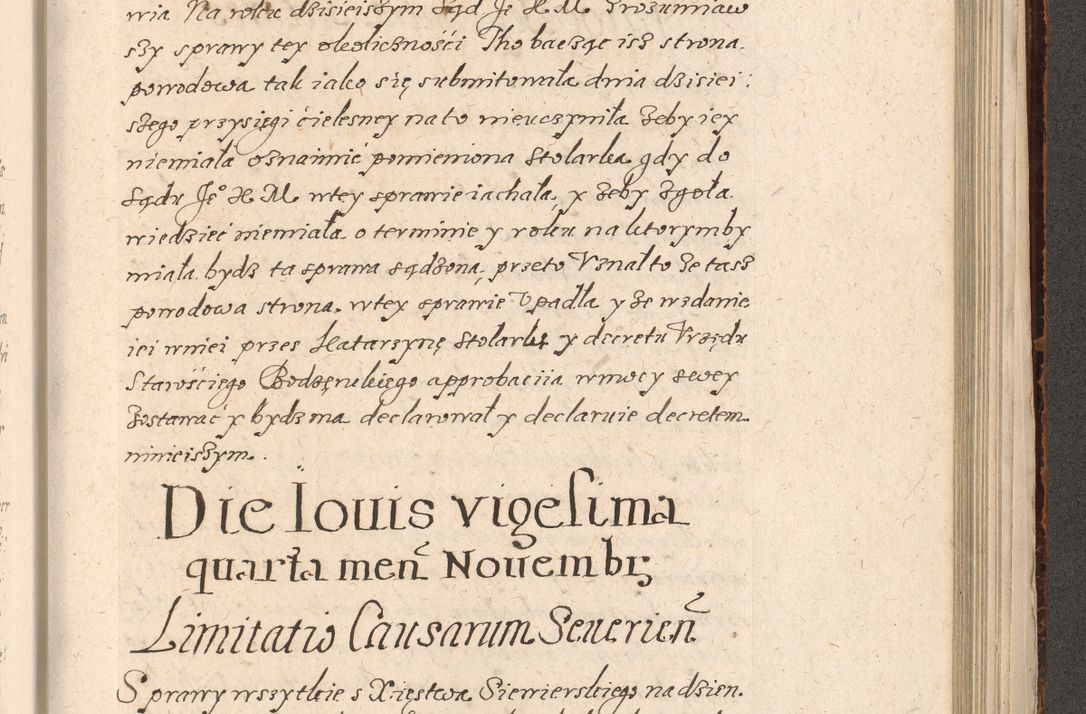 wia Na roku dzisieiszym Sąd Je° X M zrozumiaw
szy sprawy tey okoliczności Tho bacząc isz strona
powodowa tak iako się submitowała dnia dzisiei:
szego przysięgi ćielesney na to nieuczyniła żeby iey
niemiała oznaimić pomieniona Stolarka gdy do
Sądu Je° X M wtey sprawie iachała, y żeby zgoła
wiedzieć niemiała o terminie y roku na ktorymby
miała bydz ta sprawa sądzona, przeto Vznał to że tasz
powodowa strona wtey sprawie Vpadła y że wzdanie
iei wniei przes Katarzynę Stolarkę y decretu Vrzędu
Starośćiego Bodzęnckiego approbaciia wmocy swey
zostawać y bydz ma declarował y declaruie decretem
ninieiszym.
Die Iouis vigesima
quarta men̄ Nouembr̨
Limitatio Causarum Seuerień
Sprawy wszytkie s Xięstwa Siewierskiego na dzien